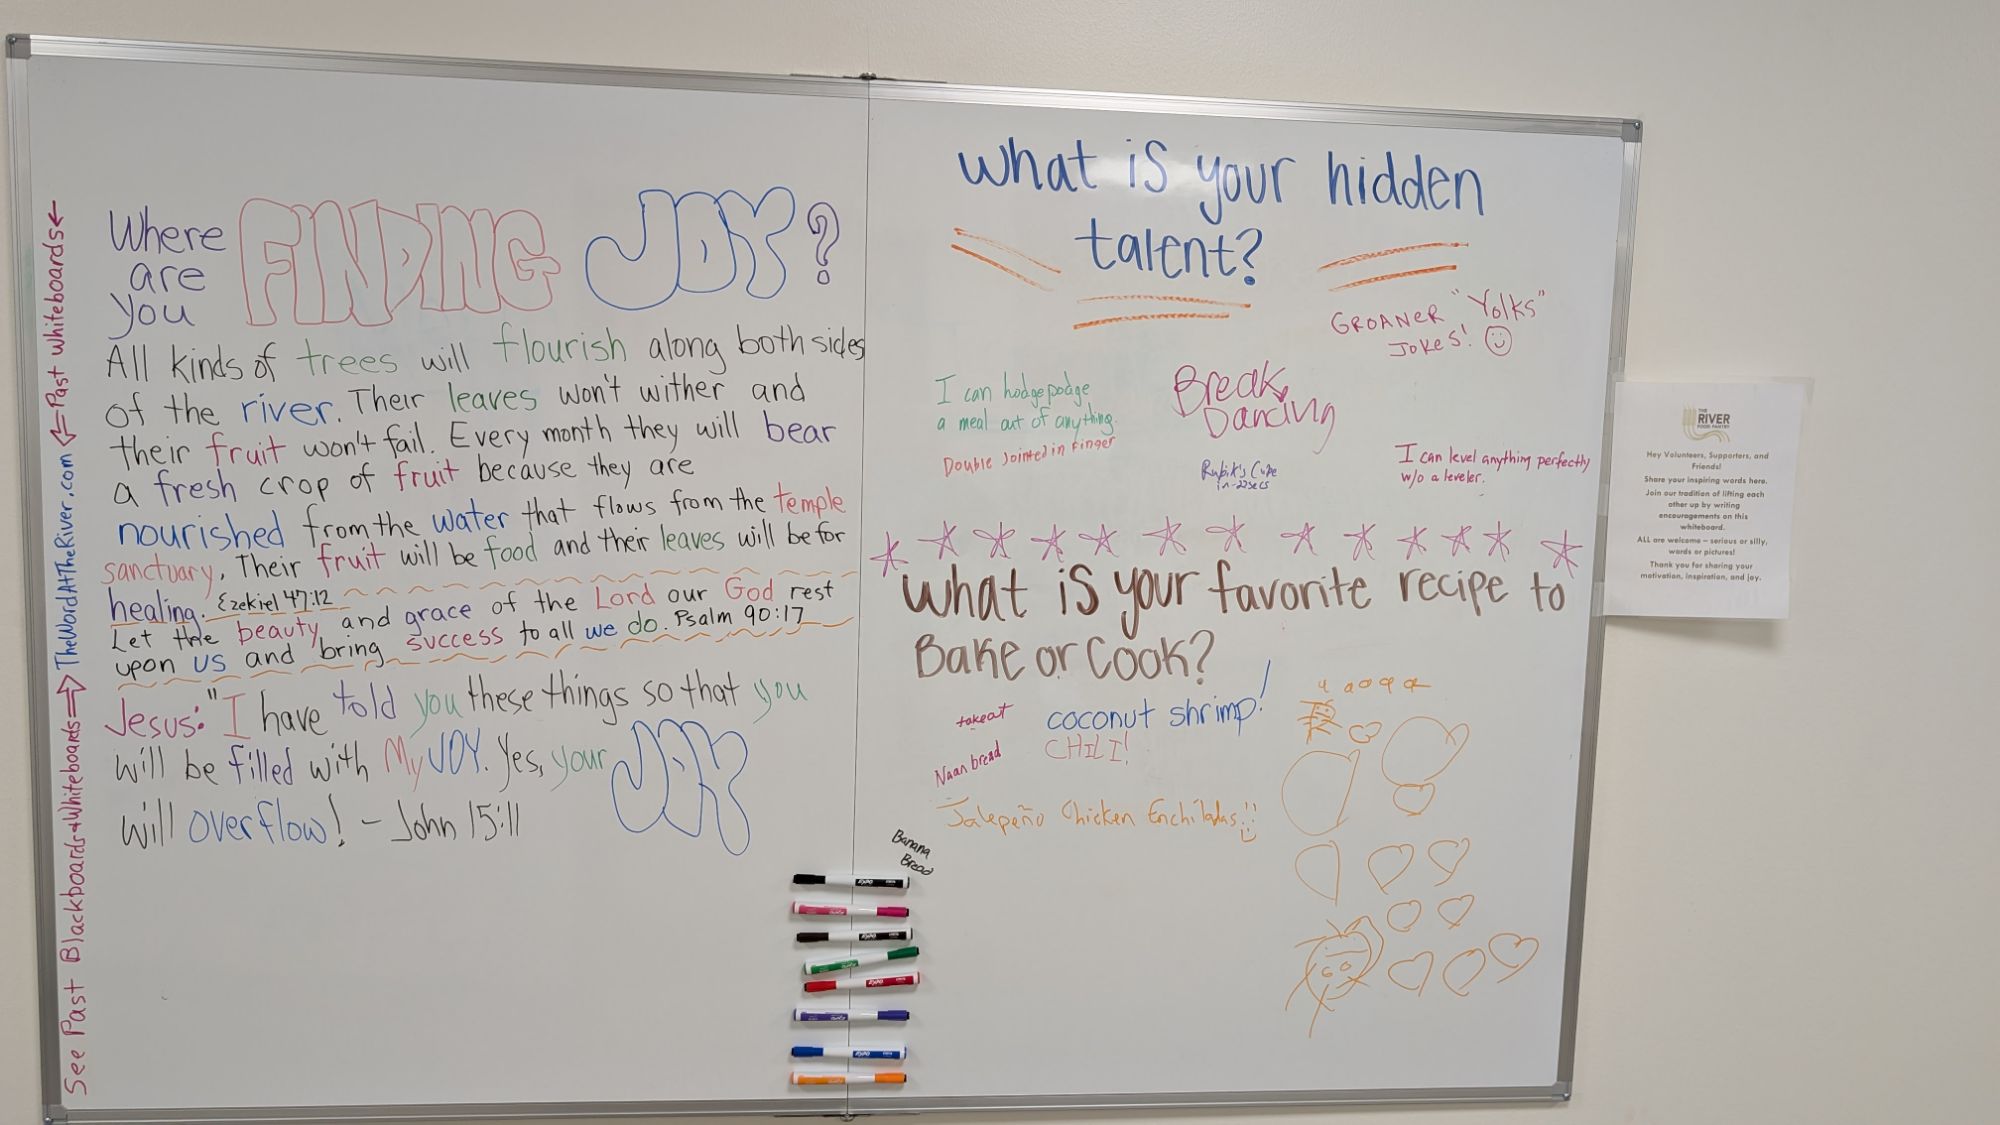 See Past Blackboards+Whiteboards⇒ TheWordAtTheRiver.com ⇐Past Whiteboards←
Where are you FINDING JOY?
All kinds of trees will flourish along both sides
of the river. Their leaves won't wither and
their fruit won't fail. Every month they will bear
a fresh crop of fruit because they are
nourished from the water that flows from the temple
sanctuary. Their fruit will be food and their leaves will be for
healing. Ezekiel 47:12
Let the beauty and grace of the Lord our God rest
upon us and bring success to all we do. Psalm 90:17
Jesus: "I have told you these things so that you
will be filled with My JOY. Yes, your JOY
will overflow! - John 15:11
What is your hidden
talent?
GROANER "Yolks"
Jokes!
I can hodgepodge
a meal out of anything.
Double Jointed in Finger
Break
Dancing
Rubik's Cube
in ~22secs
I can level anything perfectly
w/o a leveler.
What is your favorite recipe to
Bake or Cook?
takeout
coconut shrimp!
Naan bread
CHILI!
Jalepeño Chicken Enchiladas!!
Banana
Bread
THE
RIVER
FOOD PANTRY
Hey Volunteers, Supporters, and
Friends!
Share your inspiring words here.
Join our tradition of lifting each
other up by writing
encouragements on this
whiteboard.
ALL are welcome – serious or silly,
words or pictures!
Thank you for sharing your
motivation, inspiration, and joy.